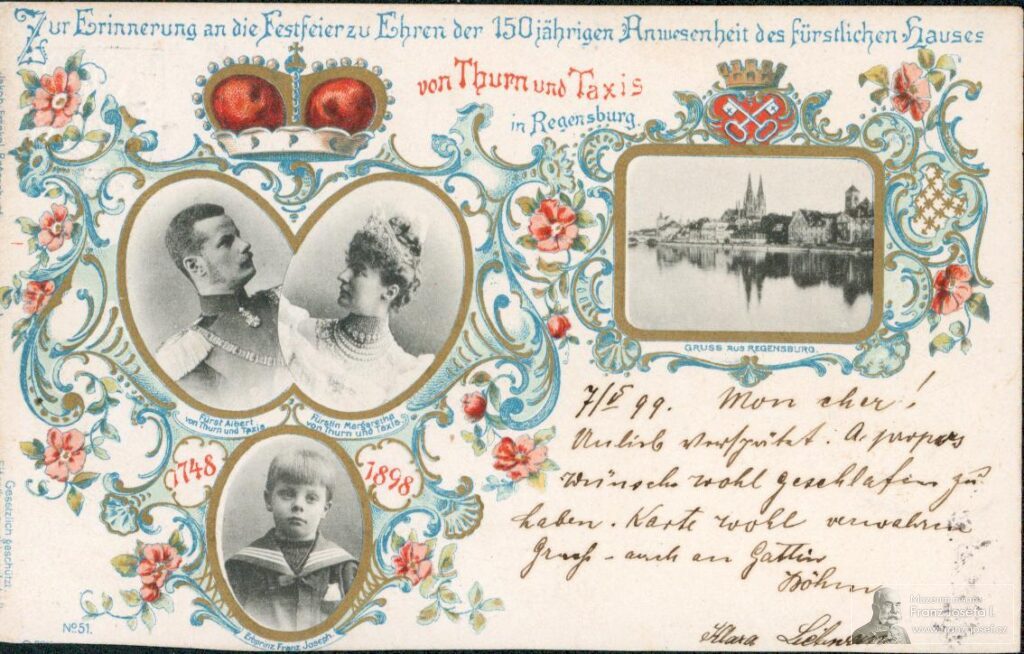 Zur Erinnerung an die Festfeier zu Ehren der 150 jährigen Anwesenheit des fürstlichen Hauses
von Thurn und Taxis
in Regensburg.
GRUSS AUS REGENSBURG.
Fürst Albert
von Thurn und Taxis
Fürstin Margaretha
von Thurn und Taxis.
1748
1898
Erbprinz Franz Joseph.
7/V 99. Mon cher!
Unlieb verspätet. A propos
wünsche wohl geschlafen zu
haben. Karte wohl verwahren
Gruß - auch an Gattin
Böhm
Klara
Gesetzlich geschützt.
No 51.
Muzeum mincí
Franz Josefa I.
www.franzjosef.cz